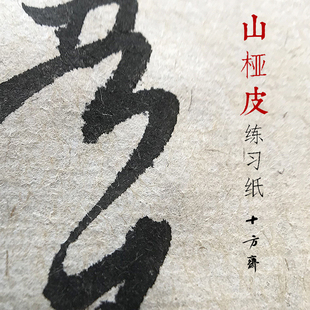 山桠皮练习纸
十方斋